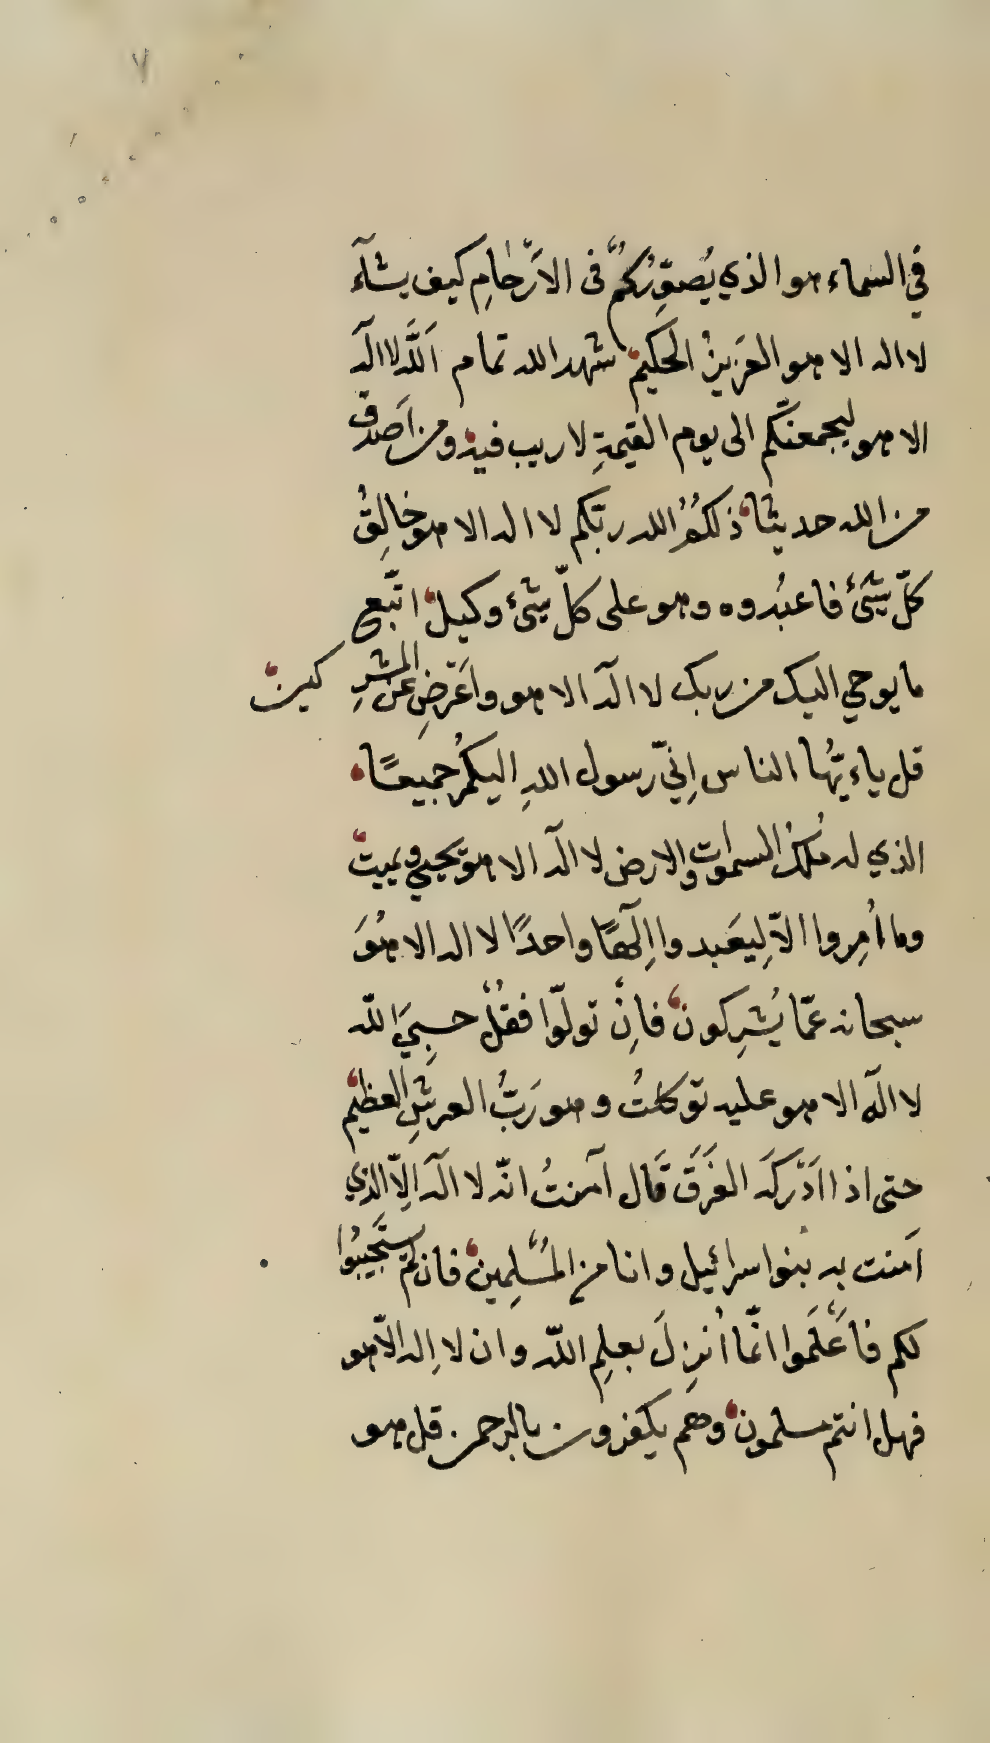 ٧
في السماء هو الذي يُصوِّرُكُمْ فى الاَرْحٰامِ كيف يشآء
لا اله الا هو العَزيزُ الحَكيمُ شهد الله تمام اَللَّه لا اله
الا هو ليجمعنّكم الى يوم القيٰمةِ لا ريب فيه ومن اَصدق
من الله حديثًا ذلكُمُ الله ربّكم لا اله الا هو خالِقُ
كلّ شَئٍ فاعبُدوه وهو على كلّ شئٍ وكيل اتّبع
ما يوحي اليك من ربك لا اله الا هو واَعْرَضِ عَن المشرِ كين
قل ياءيّهُا الناس اِنّي رسول اللهِ اليكُم جميعًا
الذي له مُلكُ السموات والارض لا اله الا هو يحيي ويميت
وما اُمِروا الاّ لِيَعبدوا اِلٰهًا واحدًا لا اله الا هُوَ
سبحانه عمّا يُشرِكون فاِنْ تولّوا فقُلْ حسبِيَ الله
لا اله الا هو عليه توكلتُ وهو رَبُّ العرشِ العظيم
حتى اذا اَدْركَه الغَرَقَ قال آمنتُ انّه لا اله اِلاّ الذي
آمنت به بنوا سرائيل وانا من المُسْلِمينَ فان لم يستَجيبُوا
لكم فاَعْلَموا انّما اُنزِلَ بعلِمِ اللّه وان لا اِله الاّ هو
فهل انتم مسلمون وهم يكفرون بالرحمن قل هو